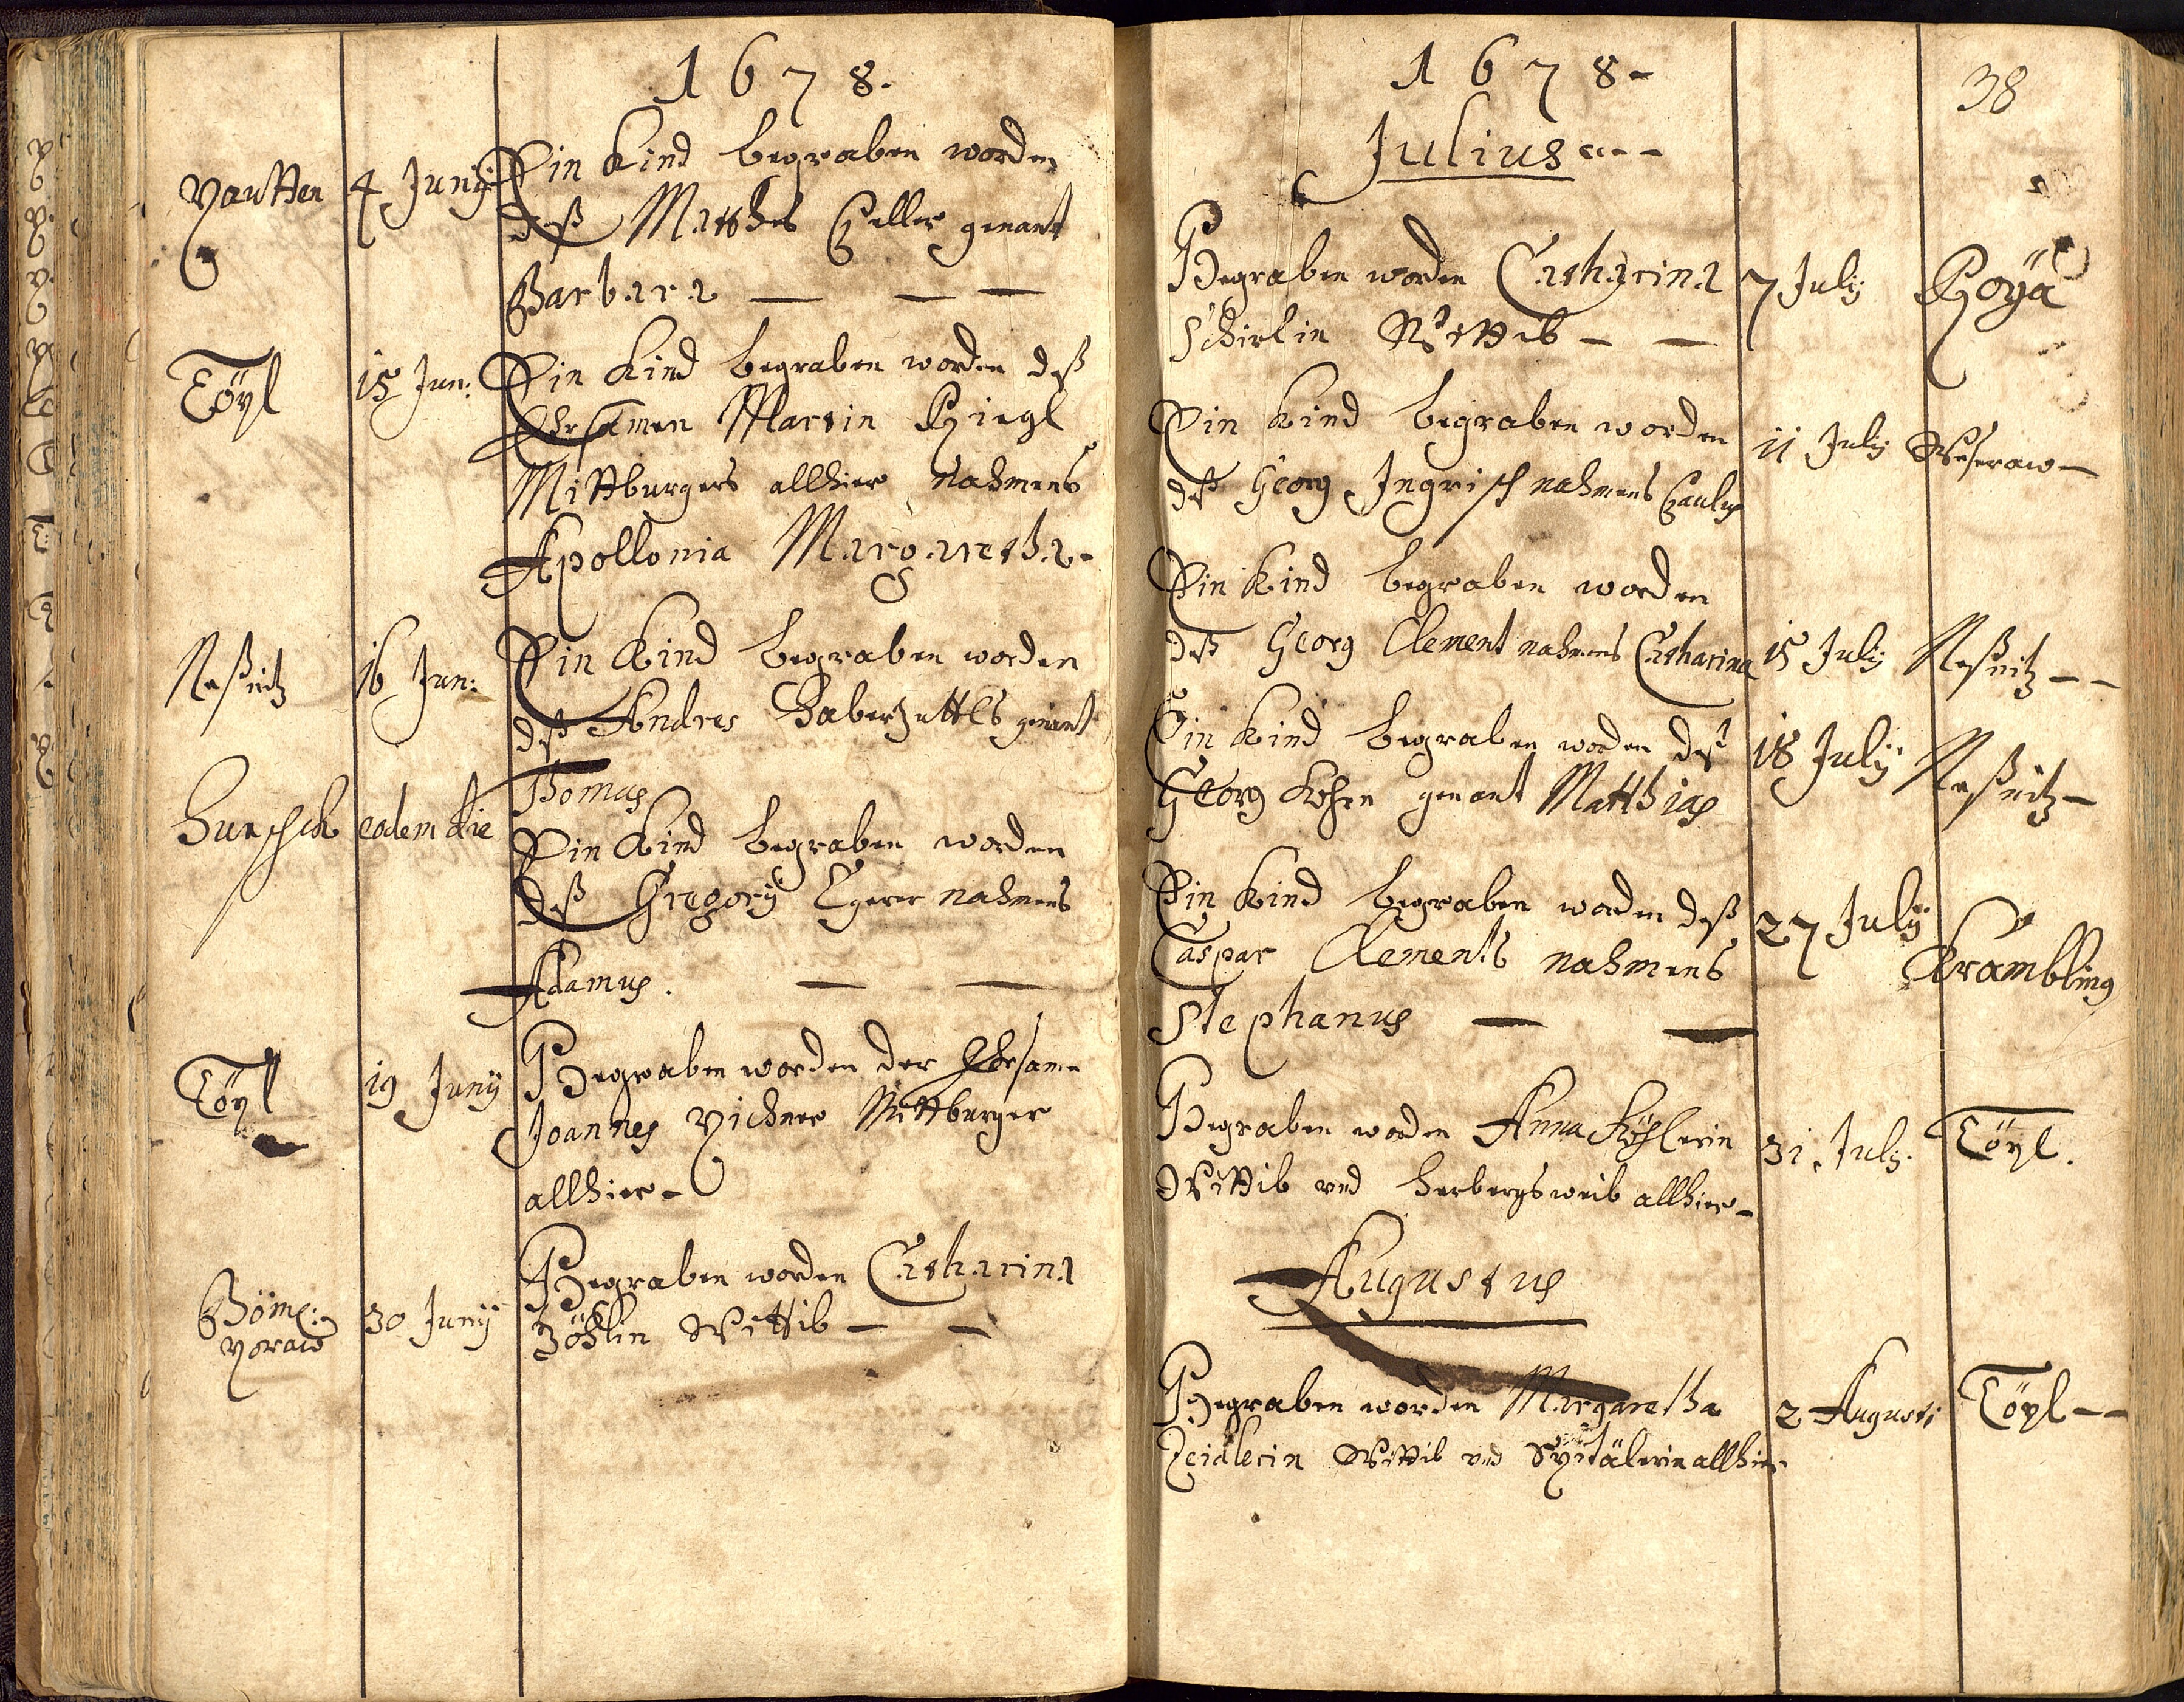 1678.
Yautten 4 Junij Ein Kind begraben worden
deß Matthes Heller genant
Barbara — — —
Töpl 15 Jun: Ein Kind begraben worden deß
Ehrsamen Martin Riegl
Mittburgers allhier Nahmens
Apollonia Margaretha.
Neßnitz 16 Jun: Ein Kind begraben worden
deß Andres Haberzettls genant
Thomas
Hurschk eodem die Ein Kind begraben worden
deß Gregorij Egerer nahmens
Adamus. — —
Töpl 19 Junij Begraben worden der Ehrsame
Joannes Pichner Mittburger
allhier -
Böm: 30 Junij Begraben worden Catharina
Boraw Zöhlin Wittib — —
1678-
38
Julius
Begraben worden Catharina 7 Julij Royä
Schirlin Wittib — —
Ein Kind begraben worden 11 Julij Weseraw -
deß Georg Ingrisch nahmens Paulus
Ein Kind begraben worden
deß Georg Clement nahmens Catharina 15 Julij Neßnitz - -
Ein Kind begraben worden deß 18 Julij Neßnitz -
Georg genant Matthias
Ein Kind begraben worden deß 27 Julij
Caspar Clements nahmens Krämbling
Stephanus — —
Begraben worden Anna Köhlerin 31 Julij. Töpl.
Wittib und Herbergsweib allhier -
Augustus
Begraben worden Margaretha 2 Augusti Töpl - -
Zeidlerin Wittib und Spitälerin allhier